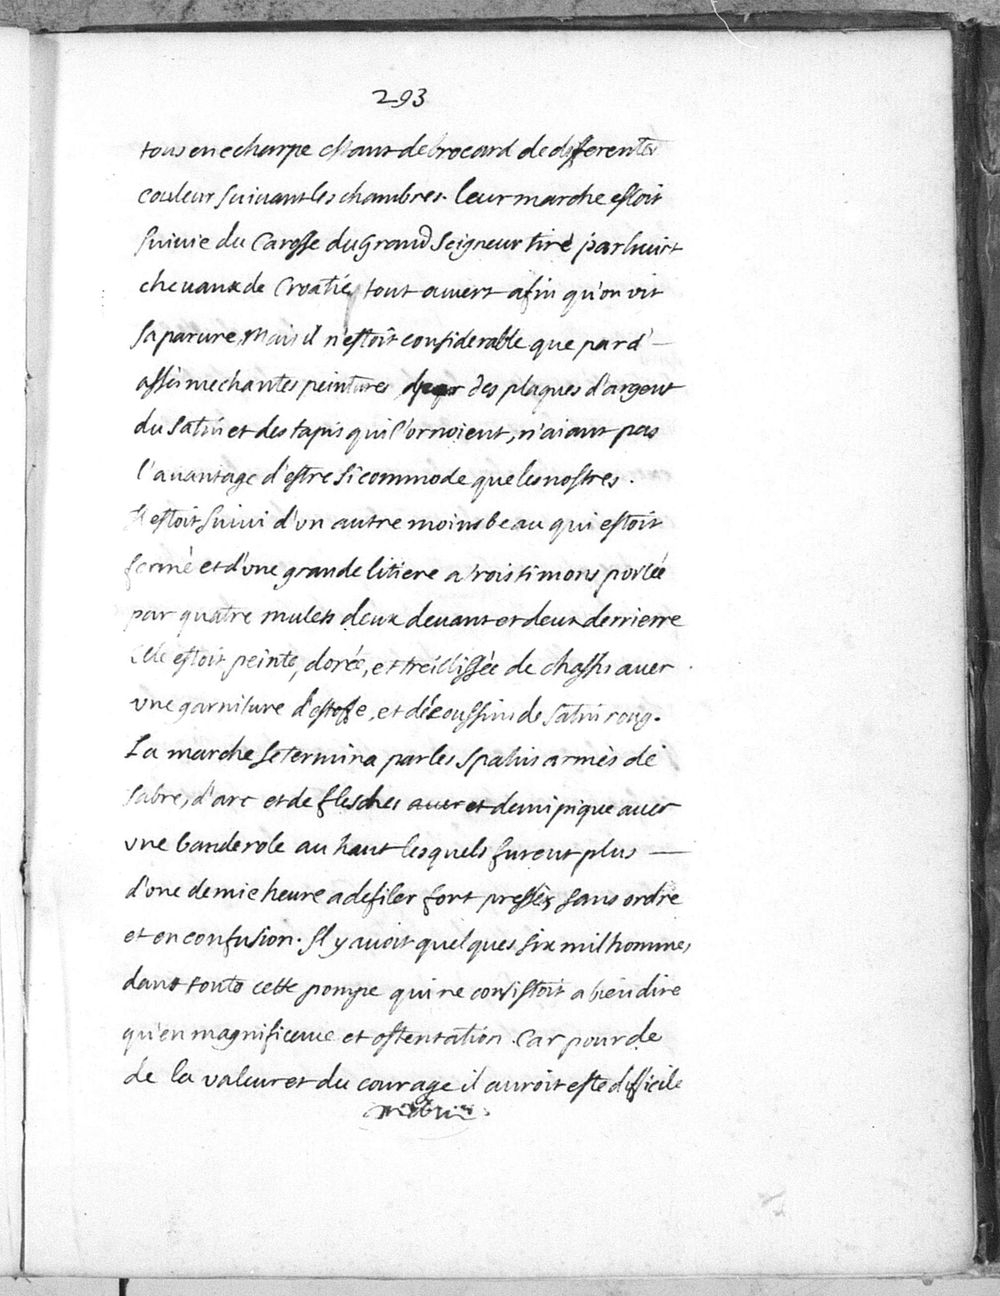 293
tous en echarpe estant de brocard de differentes
couleur suivant les chambres. leur marche estoit
suivie du Carosse du Grand Seigneur tiré par huict
chevaux de Croatie, tout ouvert afin qu'on vit
sa parure, Mais il n'estoit considerable que par d'—
assés mechantes peintures des plaques d'argent
du satin et des tapis qui l'ornoient, n'aiant pas
l'avantage d'estre si commode que les nostres.
Il estoit suivi d'un autre moins beau qui estoit
fermé et d'une grande litiere a trois timons portée
par quatre mulets deux devant et deux derrierre
Elle estoit peinte, dorée, et treillissée de chassis avec
une garniture d'estofe, et de coussins de satin roug.
La marche se termina par les Spahis armés de
sabre, d'arc et de flesches avec et demi pique avec
une banderole au haut lesquels furent plus —
d'une demie heure a defiler fort pressés sans ordre
et en confusion. Il y avoit quelques six mil hommes
dans toute cette pompe qui ne consistoit a bien dire
qu'en magnificence et ostentation. Car pour de
de la valeur et du courage il auroit esté difficile